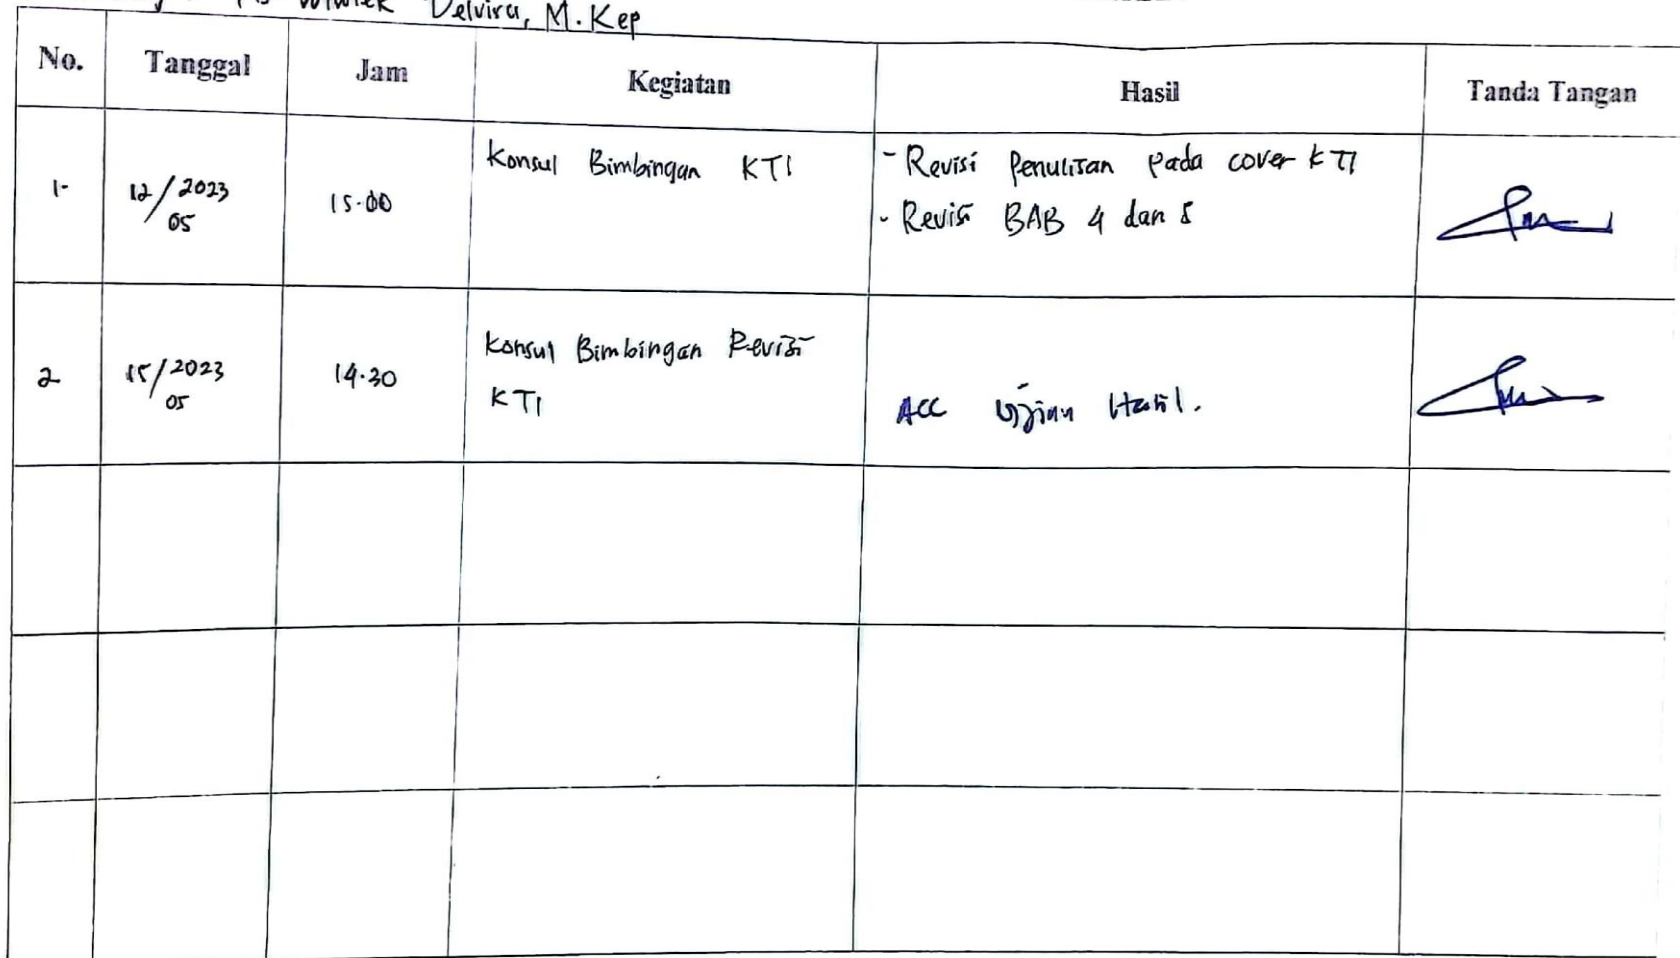 Wiwiek Delvira, M.Kep
No. Tanggal Jam Kegiatan Hasil Tanda Tangan
1. 12/2023 05 15.00 Konsul Bimbingan KTI - Revisi Penulisan pada cover KTI
- Revisi BAB 4 dan 5
2 15/2023 05 14.30 Konsul Bimbingan Revisi
KTI ACC Ujian Hasil.